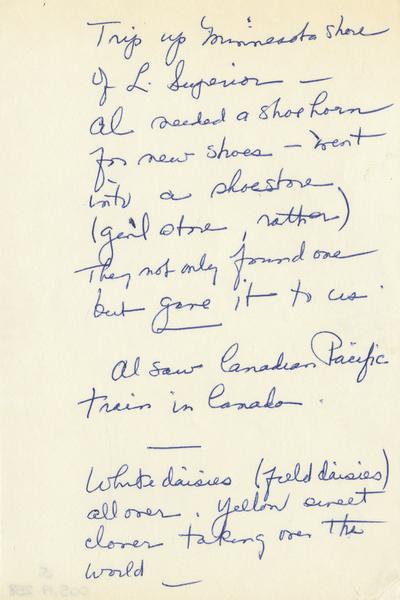 Trip up Minnesota shore
of L. Superior —
Al needed a shoe horn
for new shoes — went
into a shoestore
(gen'l store, rather)
They not only found one
but gave it to us.
Al saw Canadian Pacific
train in Canada.
White daisies (field daisies)
all over. Yellow sweet
clover taking over the
world —